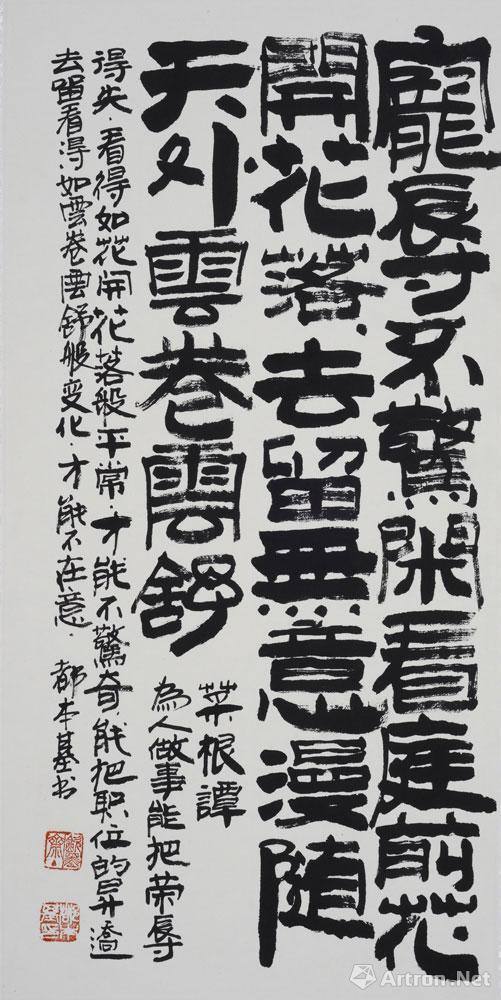 寵辱不驚閑看庭前花
開花落去留無意漫隨
天外雲卷雲舒
菜根譚
為人做事能把荣辱
得失.看得如花開花落般平常.才能不驚奇.能把职位的昇遷
去留看得如雲卷雲舒般变化.才能不在意.都本基书
Artron.Net